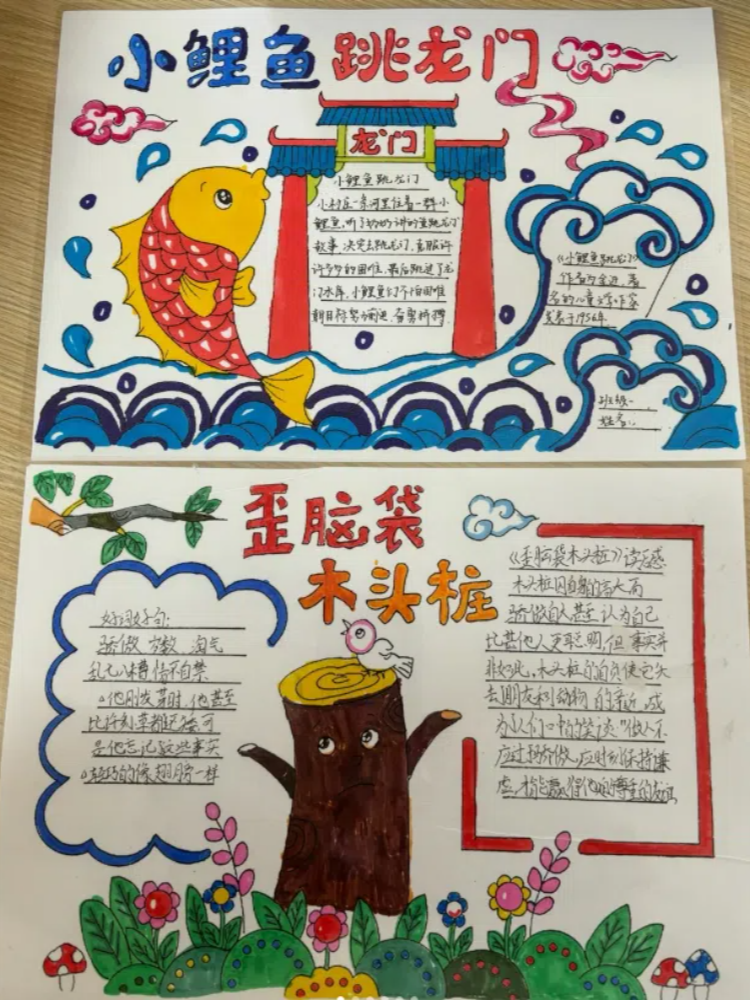 小鲤鱼跳龙门
龙门
小鲤鱼跳龙门
小村庄一条河里住着一群小
鲤鱼,听了奶奶讲的鱼跳龙门
故事,决定去跳龙门,克服许
许多多的困难,最后跳过了龙
门水库,小鲤鱼们不怕困难
朝目标努力
《小鲤鱼跳龙门》
作者为金近,著
名的儿童文学作家
发表于1956年
班级:
姓名:
歪脑袋
木头桩
好词好句:
骄傲 岁数 淘气
乱七八糟 情不自禁
他刚发芽时,他甚至
比许多草都还矮,可
是他忘记这些事实
轻巧的像翅膀一样
《歪脑袋木头桩》读后感
木头桩因自身的高大而
骄傲自大甚至认为自己
比其他人更聪明,但事实并
非如此,木头桩的自负使它失
去朋友和动物的亲近,成
为人们口中的笑谈"做人不
应过于骄傲,应时刻保持谦
虚,才能赢得他人的尊重的友谊